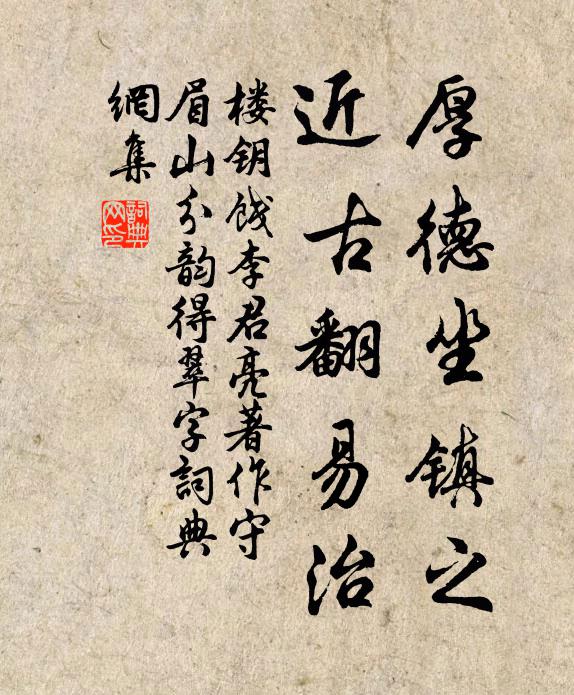 厚德坐镇之
近古翻易治
楼钥饯李君亮著作守
眉山分韵得翠字詞典
網集
詞典
网印